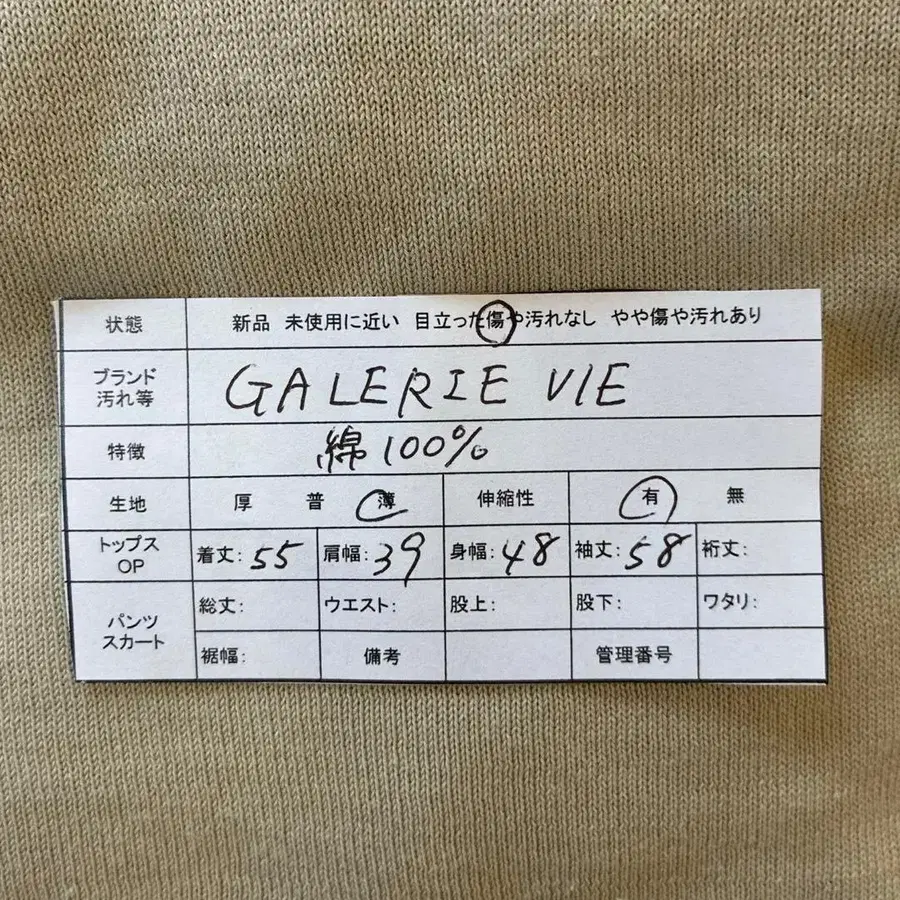 状態 新品 未使用に近い 目立った傷や汚れなし やや傷や汚れあり
ブランド
汚れ等 GALERIE VIE
特徴 綿100%
生地 厚 普 薄 伸縮性 有 無
トップス
OP 着丈:55 肩幅:39 身幅:48 袖丈:58 裄丈:
パンツ
スカート 総丈: ウエスト: 股上: 股下: ワタリ:
裾幅: 備考 管理番号